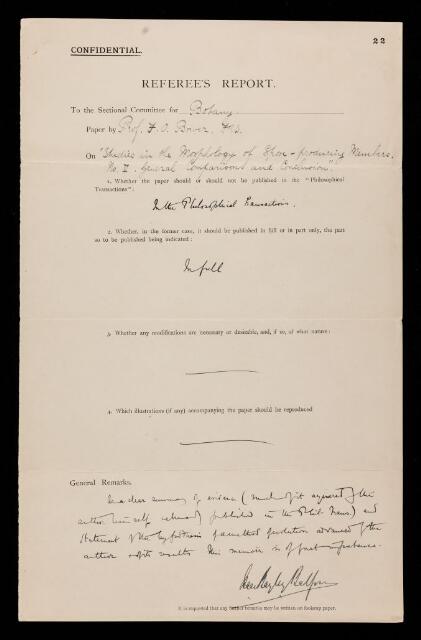 22
CONFIDENTIAL.
REFEREE'S REPORT.
To the Sectional Committee for Botany
Paper by Prof. F. O. Bower, FRS.
On "Studies in the Morphology of Spore-producing Members.
No. V. General Comparisons and Conclusion".
1. Whether the paper should or should not be published in the "Philosophical
Transactions":
In the Philosophical Transactions.
2. Whether, in the former case, it should be published in full or in part only, the part
so to be published being indicated:
In full
3. Whether any modifications are necessary or desirable, and, if so, of what nature:
4. Which illustrations (if any) accompanying the paper should be reproduced
General Remarks.
As a clear summary of evidence (much of it of the
author himself already published in the Phil. Trans.) and
statement of the hypothesis of evolution advanced by the
author & its results this memoir is of great importance.
Isaac Bayley Balfour
It is requested that any further remarks may be written on foolscap paper.